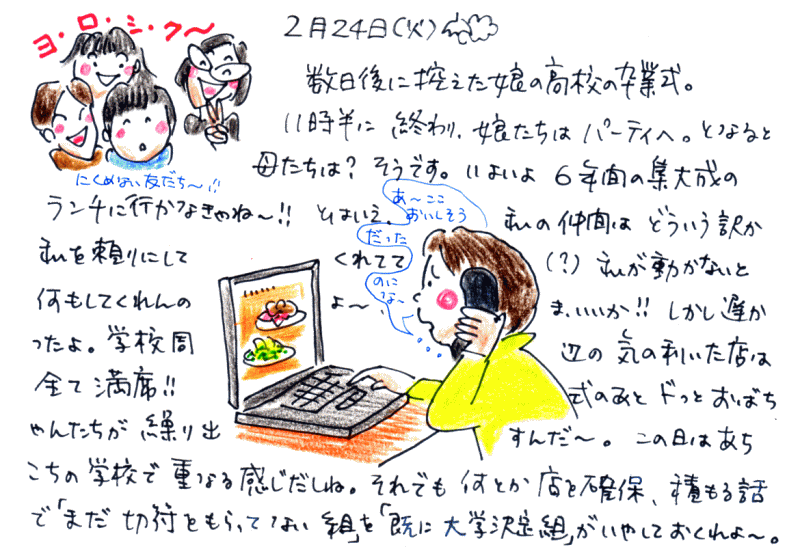 ヨ・ロ・シ・ク〜
2月24日(火)
数日後に控えた娘の高校の卒業式。
11時半に終わり、娘たちはパーティへ。となると
母たちは？そうです。いよいよ6年間の集大成の
にくめない友だち〜!!
ランチに行かなきゃね〜!! とはいえ、私の仲間はどういう訳か
あ〜ここ
おいしそう
だった
のに
な〜
私を頼りにしてくれてて(?)私が動かないと
何もしてくれんのよ〜。ま、いいか!!しかし遅か
ったよ。学校周辺の気の利いた店は
全て満席!!式のあとドっとおばち
ゃんたちが繰り出すんだ〜。この日はあち
こちの学校で重なる感じだしね。それでも何とか店を確保、積もる話
で「まだ切符をもらってない組」を「既に大学決定組」がいやしておくれよ〜。